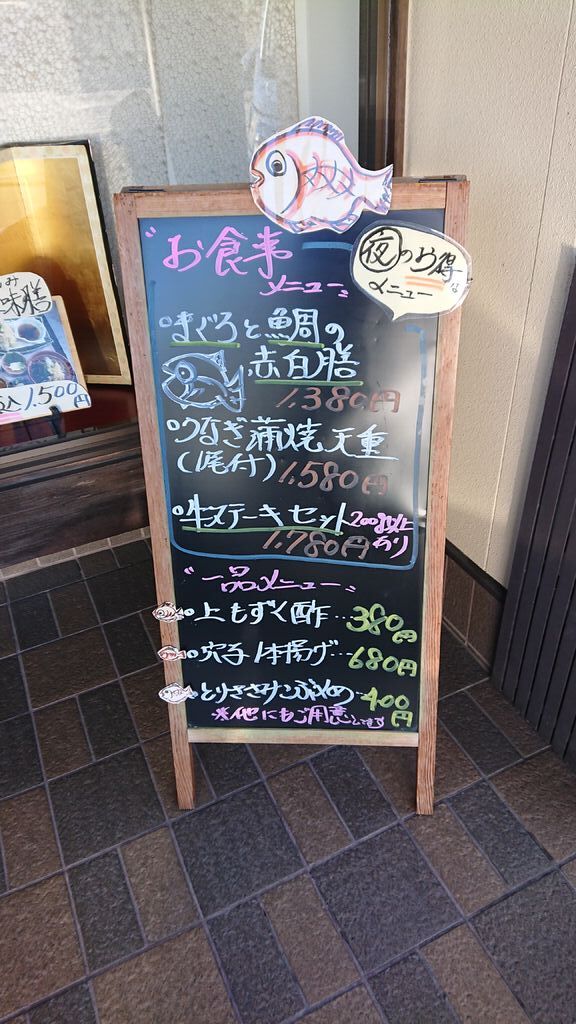 み
味膳
込1,500円
"お食事
メニュー"
夜のお得な
メニュー
○まぐろと鯛の
赤白膳
1,380円
○うなぎ蒲焼天重
(1尾付) 1,580円
○牛ステーキセット 200g以上
1,780円 あり
"一品メニュー"
○上もずく酢…380円
○穴子1本揚げ…680円
○とりささみサン
400円
※他にもご用意